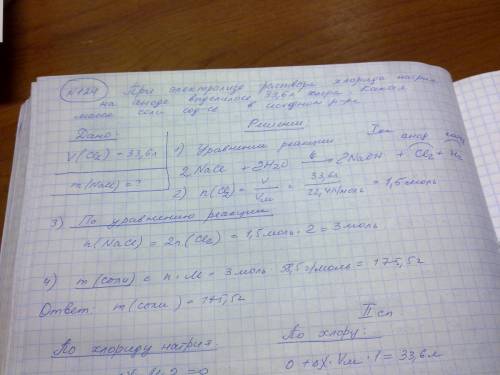 №124 При электролизе раствора хлорида натрия
на аноде выделилось 33,6 л хлора. Какая
масса соли сод-ся в исходном р-ре
Дано:
Решение
V(Cl₂) = 33,6 л
m(NaCl) = ?
I сп анод катод
1) Уравнение реакции
2NaCl + 2H₂O → 2NaOH + Cl₂ + H₂
2) n(Cl₂) = V/Vм = 33,6 л/22,4 л/моль = 1,5 моль
3) По уравнению реакции
n(NaCl) = 2n(Cl₂) = 1,5 моль · 2 = 3 моль
4) m(соли) = n · M = 3 моль · 58,5 г/моль = 175,5 г
Ответ: m(соли) = 175,5 г
II сп
По хлориду натрия
По хлору:
0 + ΔX · Vм · 1 = 33,6 л